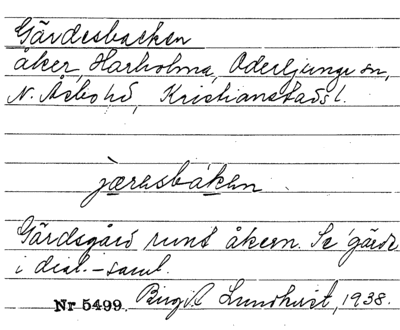 Gärdesbacken
åker, Harholma, Oderljunga sn,
N. Åsbo hd, Kristianstads l.
jæresbaken
Gärdsgård runt åkern. Se gärde
i dial.-saml.
Nr 5499. Birgit Lundkvist, 1938.